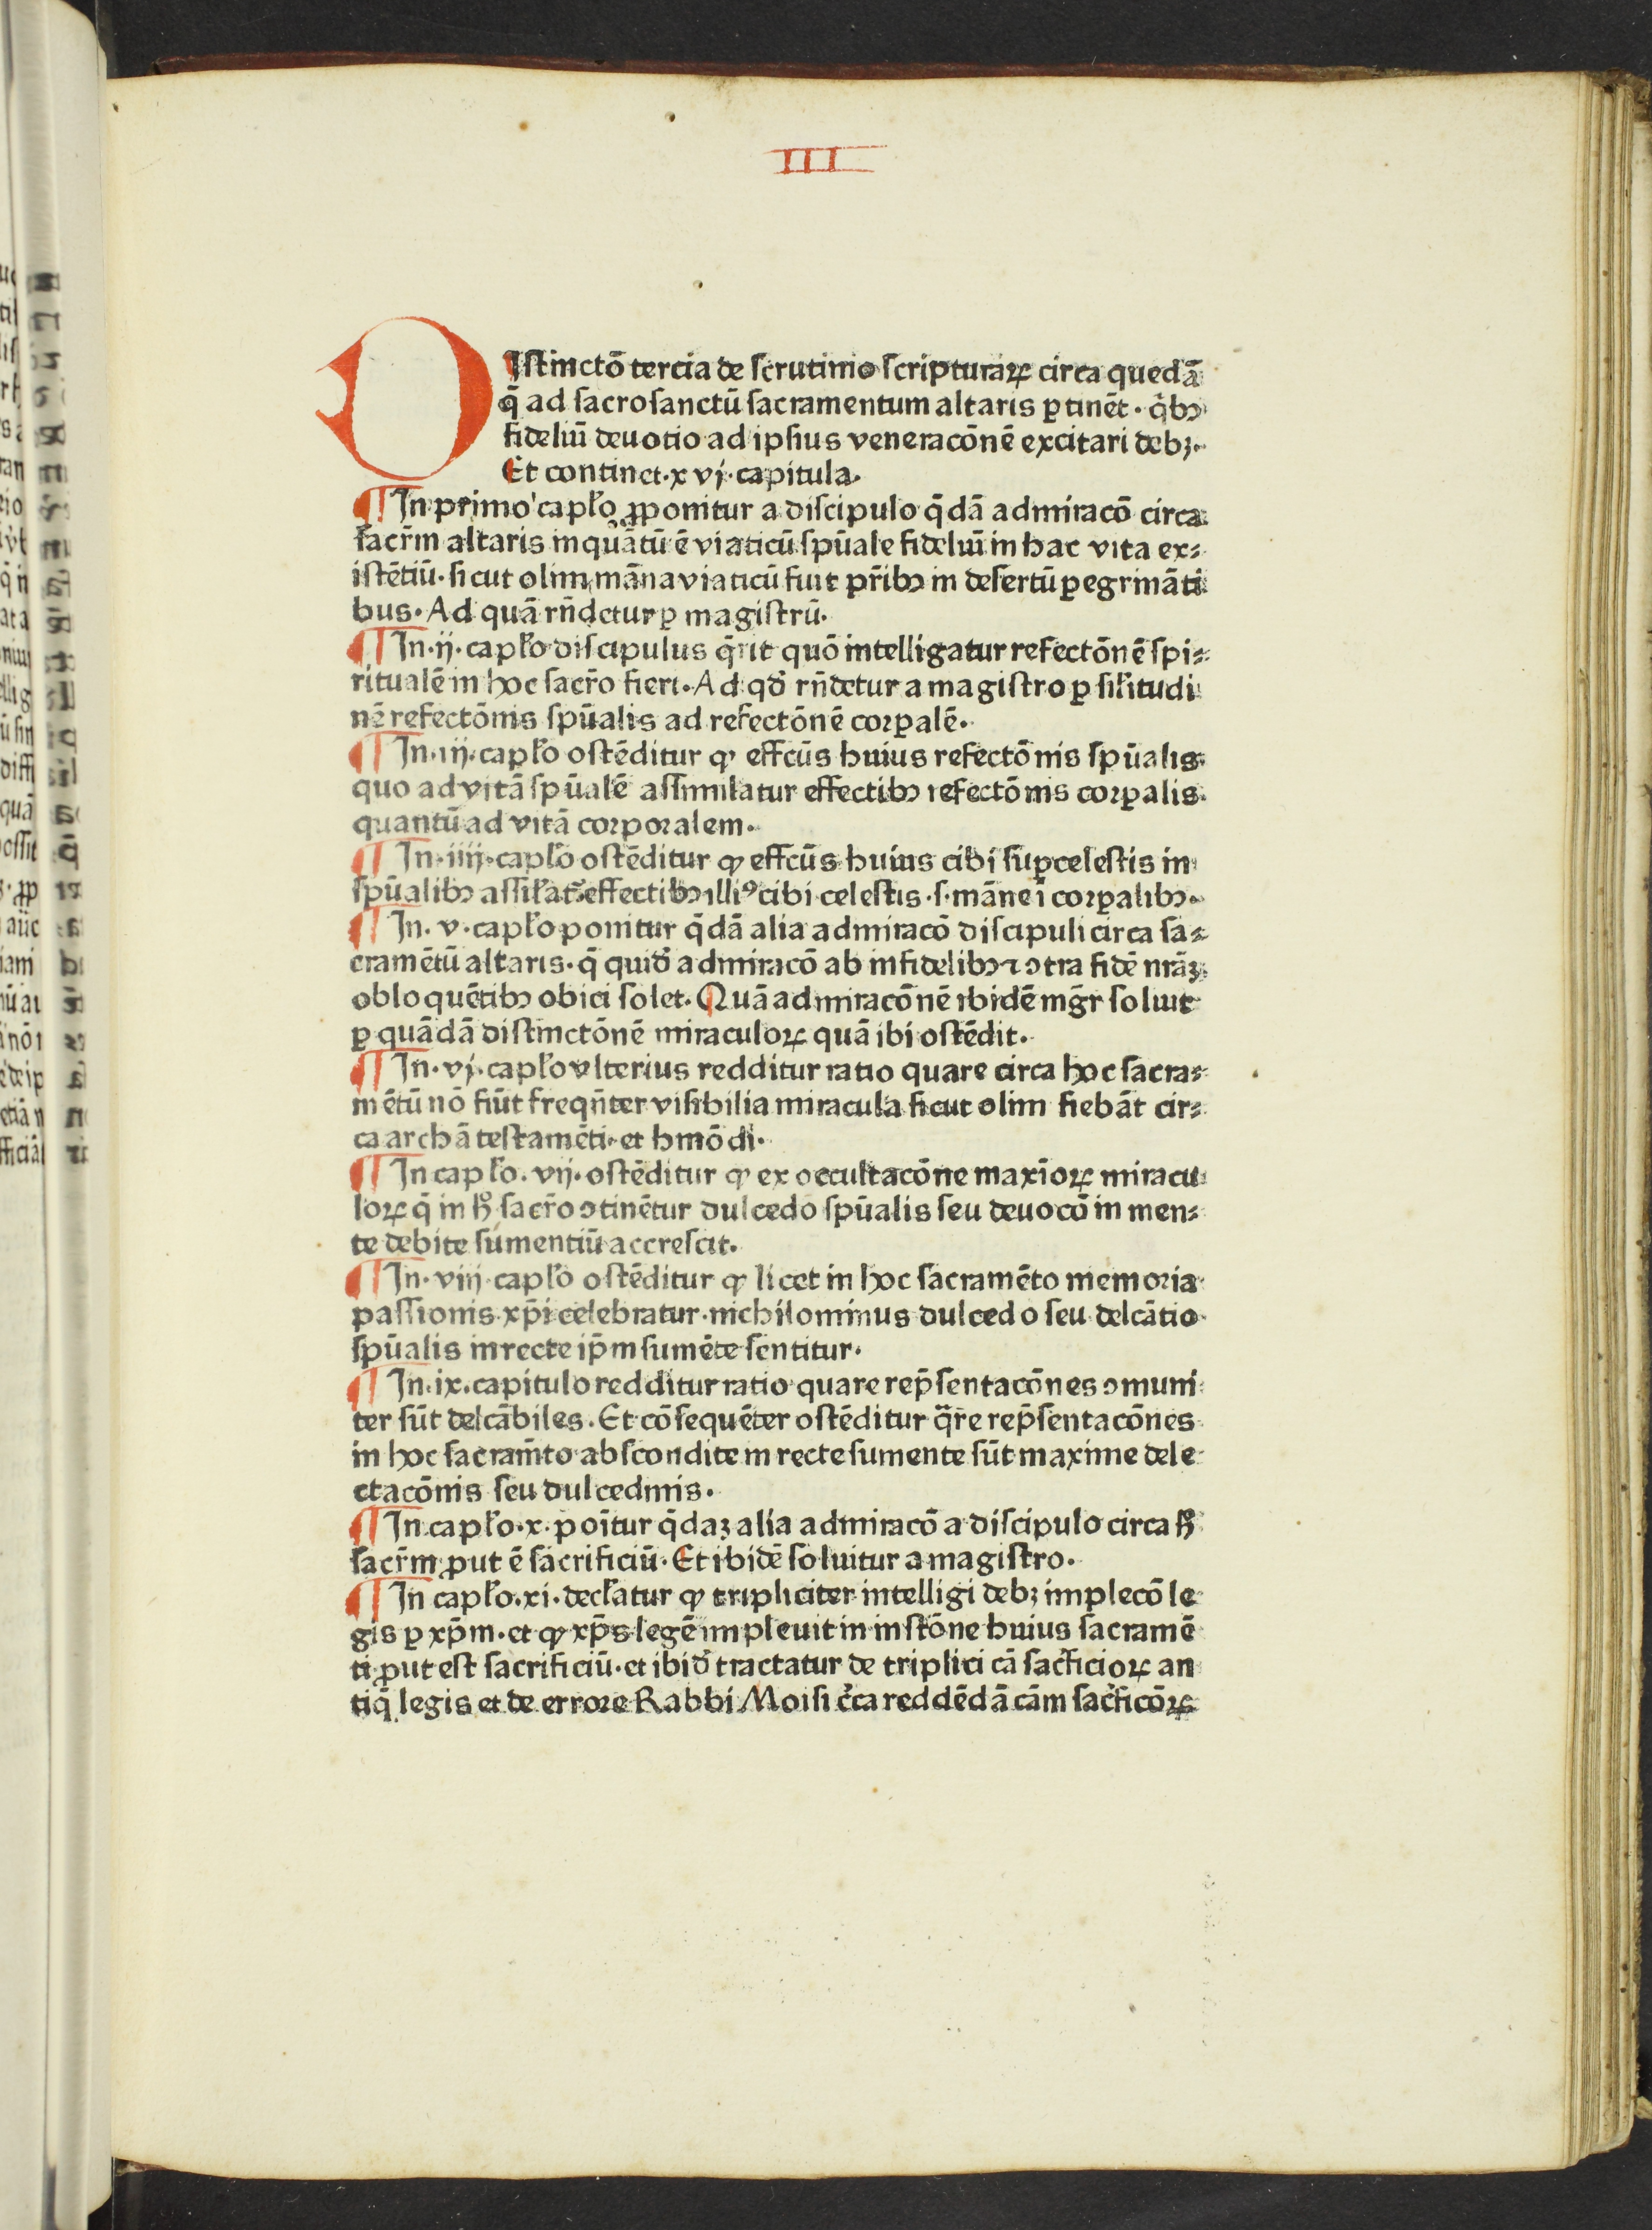 III
DIstinctō tercia de scrutinio scripturaꝝ circa quedā
q̄ ad sacrosanctū sacramentum altaris ꝑtinēt · q̇bꝫ
fideliū deuotio ad ipsius veneracōnē excitari debꝫ·
Et continet·xvj·capitula·
¶ In primo capło ꝓponitur a discipulo q̄dā admiracō circa
sacr̄m altaris inquātū ē viaticū spūale fideliū in hac vita ex⸗
istētiū· sicut olim māna viaticū fuit pr̄ibꝫ in desertū ꝑegrināti
bus· Ad quā rn̄detur ꝑ magistrū·
¶ In·ij·capło discipulus q̄rit quō intelligatur refectōnē spi⸗
ritualē in hoc sacr̄o fieri· Ad qđ rn̄detur a magistro ꝑ siłitudi
nē refectōnis spūalis ad refectōnē corꝑalē·
¶ In·iij·capło ostēditur ꝙ effcūs huius refectōnis spūalis
quo ad vitā spūalē assimilatur effectibꝫ refectōnis corꝑalis·
quantū ad vitā corporalem·
¶ In·iiij·capło ostēditur ꝙ effcūs huius cibi suꝑcelestis in
spūalibꝫ assiłat᷑ effectibꝫ illiꝰ cibi celestis ·s· māne ī corꝑalibꝫ·
¶ In·v·capło ponitur q̄dā alia admiracō discipuli circa sa⸗
cramētū altaris· q̄ quiđ admiracō ab infidelibꝫ ⁊ ↄtra fidē nrāꝫ
obloquētibꝫ obici solet· Quā admiracōnē ibidē mḡr soluit
ꝑ quādā distinctōnē miraculoꝝ quā ibi ostēdit·
¶ In·vj·capło vlterius redditur ratio quare circa hoc sacra⸗
mētū nō fiūt freqn̄ter visibilia miracula sicut olim fiebāt cir⸗
ca archā testamēti· et hmōdi·
¶ In capło·vij·ostēditur ꝙ ex occultacōne maxīoꝝ miracu
loꝝ q̄ in ħ sacr̄o ↄtinētur dulcedo spūalis seu deuocō in men⸗
te debite sumentiū accrescit·
¶ In·viij·capło ostēditur ꝙ licet in hoc sacramēto memoria
passionis xp̄i celebratur· nichilominus dulcedo seu delcātio
spūalis in recte ip̄m sumēte sentitur·
¶ In·ix·capitulo redditur ratio quare rep̄sentacōnes ↄmuni
ter sūt delcābiles· Et cōsequēter ostēditur q̄re rep̄sentacōnes
in hoc sacram̄to abscondite in recte sumente sūt maxime dele
ctacōnis seu dulcedinis·
¶ In capło·x·poītur q̄daꝫ alia admiracō a discipulo circa ħ
sacr̄m ꝓut ē sacrificiū· Et ibidē soluitur a magistro·
¶ In capło·xi·decłatur ꝙ tripliciter intelligi debꝫ implecō le
gis ꝑ xp̄m· et ꝙ xp̄s legē impleuit in instōne huius sacramē
ti ꝓut est sacrificiū· et ibiđ tractatur de triplici cā sac̄ficioꝝ an
tiq̄ legis et de errore Rabbi Moisi c̄ca reddēdā cām sac̄ficōꝝ